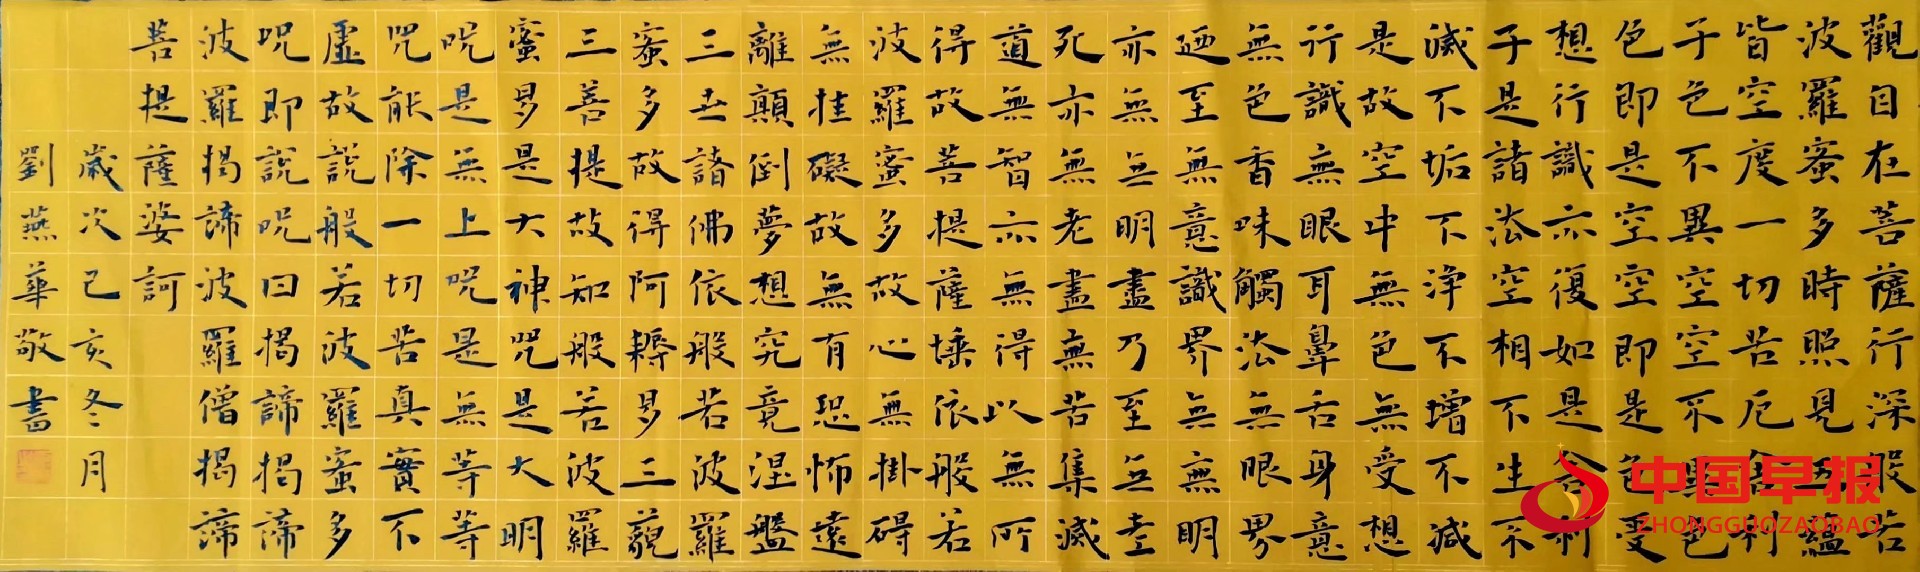 觀自在菩薩行深般若
波羅蜜多時照見五蘊
皆空度一切苦厄舍利
子色不異空空不異色
色即是空空即是色受
想行識亦復如是舍利
子是諸法空相不生不
滅不垢不淨不增不減
是故空中無色無受想
行識無眼耳鼻舌身意
無色香味觸法無眼界
迺至無意識界無無明
亦無无明盡乃至无老
死亦無老盡無苦集滅
道無智亦無得以無所
得故菩提薩埵依般若
波羅蜜多故心無掛碍
無挂礙故無有恐怖遠
離顛倒夢想究竟涅盤
三世諸佛依般若波羅
蜜多故得阿耨多三藐
三菩提故知般若波羅
蜜多是大神咒是大明
呪是無上呪是無等等
咒能除一切苦真實不
虛故說般若波羅蜜多
呪即說呪曰揭諦揭諦
波羅揭諦波羅僧揭諦
菩提薩婆訶
歲次己亥冬月
劉燕華敬書
中国早报
ZHONGGUOZAOBAO